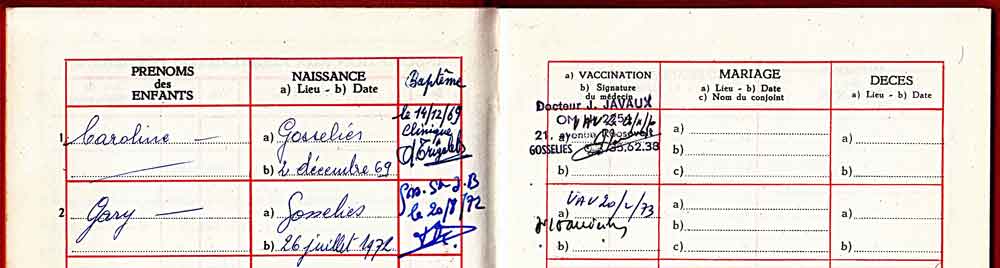 PRENOMS
des
ENFANTS
NAISSANCE
a) Lieu - b) Date
Baptême
1 Caroline —
a) Gosselies
b) 2 décembre 69
le 14/12/69
Clinique
2 Gary —
a) Gosselies
b) 26 juillet 1972
Gos. St J.B
le 20/8/72
a) VACCINATION
b) Signature
du médecin
MARIAGE
a) Lieu - b) Date
c) Nom du conjoint
DECES
a) Lieu - b) Date
Docteur J. JAVAUX
21, avenue Roosevelt
GOSSELIES
b)
a)
b)
c)
a)
b)
a) VAV
b)
a)
b)
c)
a)
b)